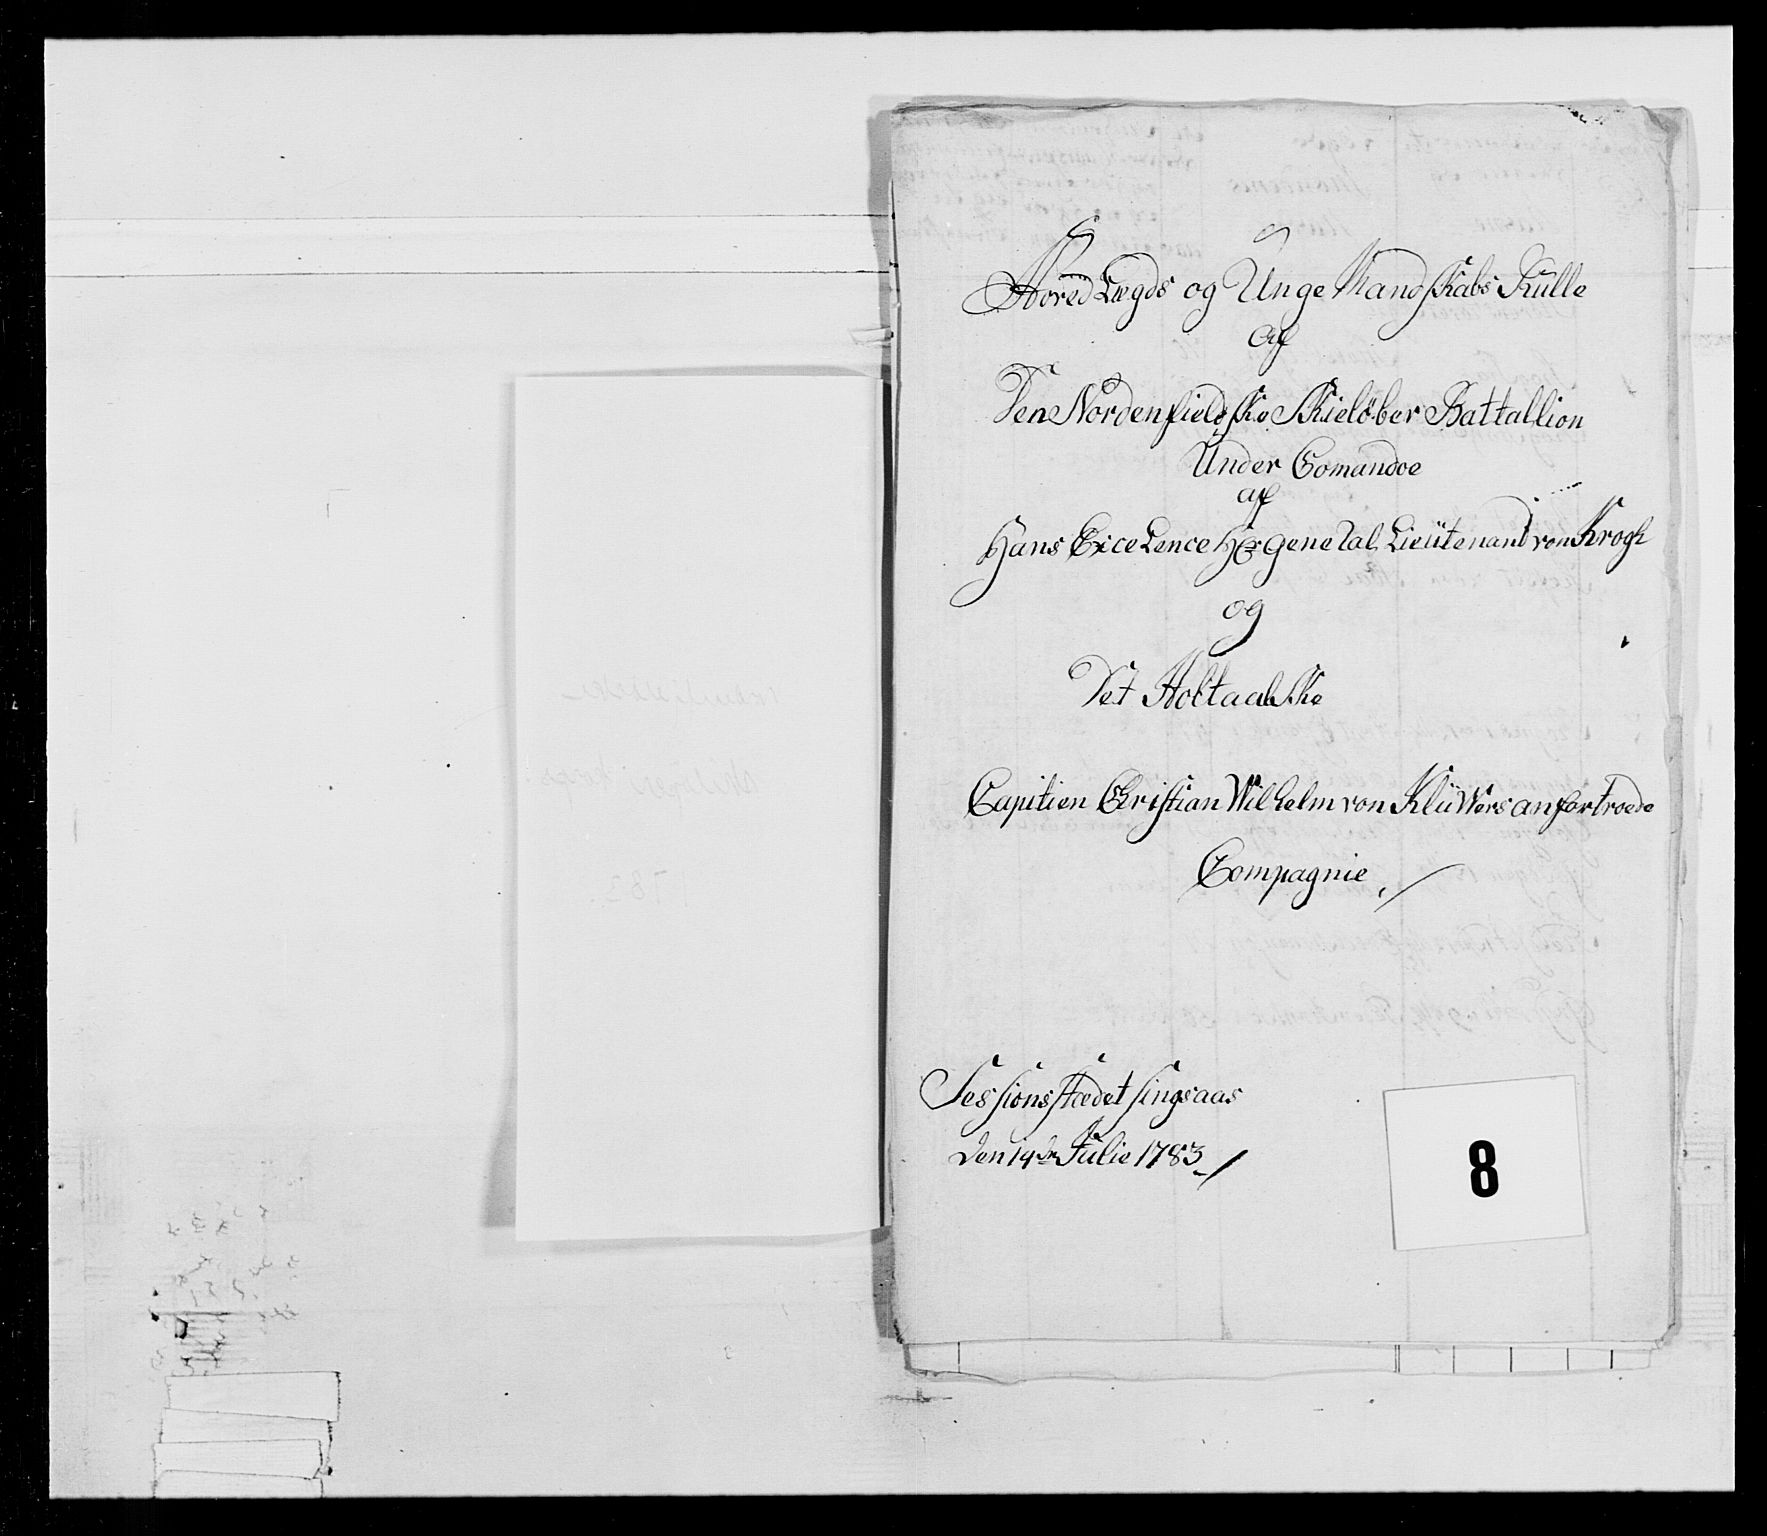 Hoved Lægds og Unge Mandskabs Rulle
af
Den Nordenfieldske Skielöber Battallion
Under Comandoe
af
Hans Excelence Hr General Lieütenand von Krogh
og
Det Holtaalske
Capitien Christian Wilhelm von Klüwers anfortroede
Compagnie
Sessions stædet Singsaas
den 14de Julie 1783
8